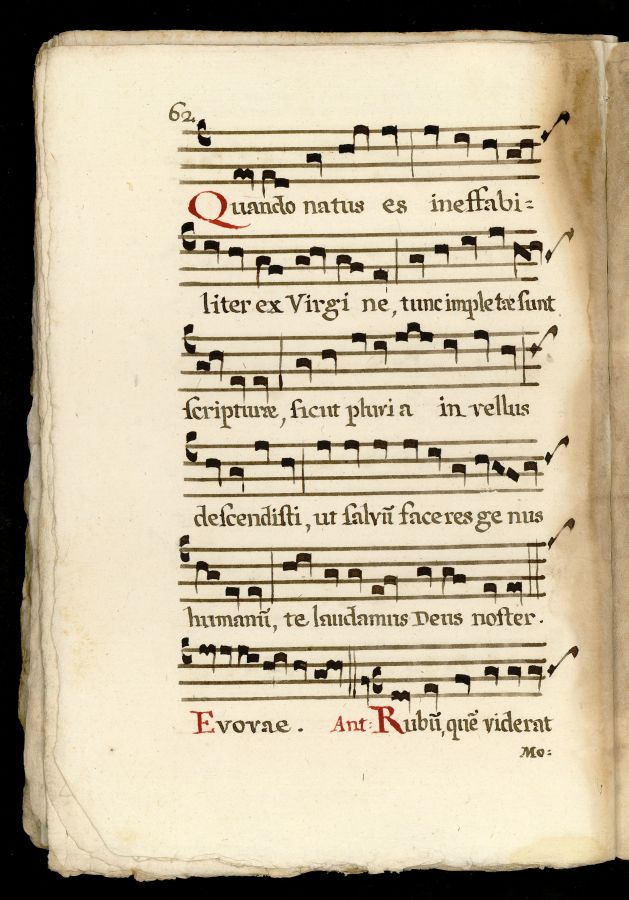 62.
Quando natus es ineffabi=
liter ex Virgi ne, tunc impletæ sunt
scripturæ, sicut pluvi a in vellus
descendisti, ut salvũ faceres ge nus
humanũ, te laudamus Deus noster.
Evovae. Ant: Rubũ, quẽ viderat
Mo: